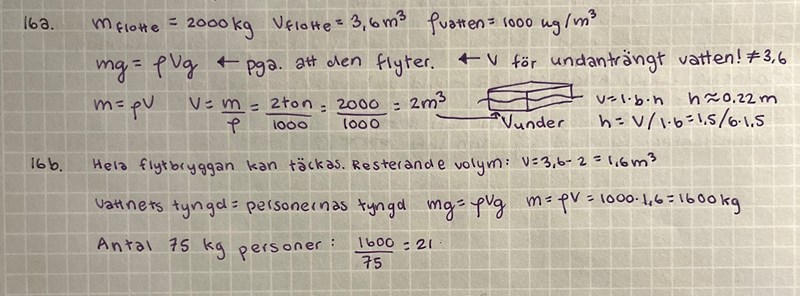 16a. m flotte = 2000 kg V flotte = 3,6 m³ ρvatten = 1000 kg/m³
mg = ρVg ← pga. att den flyter. ← V för undanträngt vatten! ≠ 3,6
m = ρV V = m/ρ = 2ton/1000 = 2000/1000 = 2m³ Vunder V = l·b·h h ≈ 0,22 m
h = V/l·b = 1,5/6·1,5
16b. Hela flytbryggan kan täckas. Resterande volym: V = 3,6 - 2 = 1,6 m³
Vattnets tyngd = personernas tyngd mg = ρVg m = ρV = 1000·1,6 = 1600 kg
Antal 75 kg personer: 1600/75 = 21